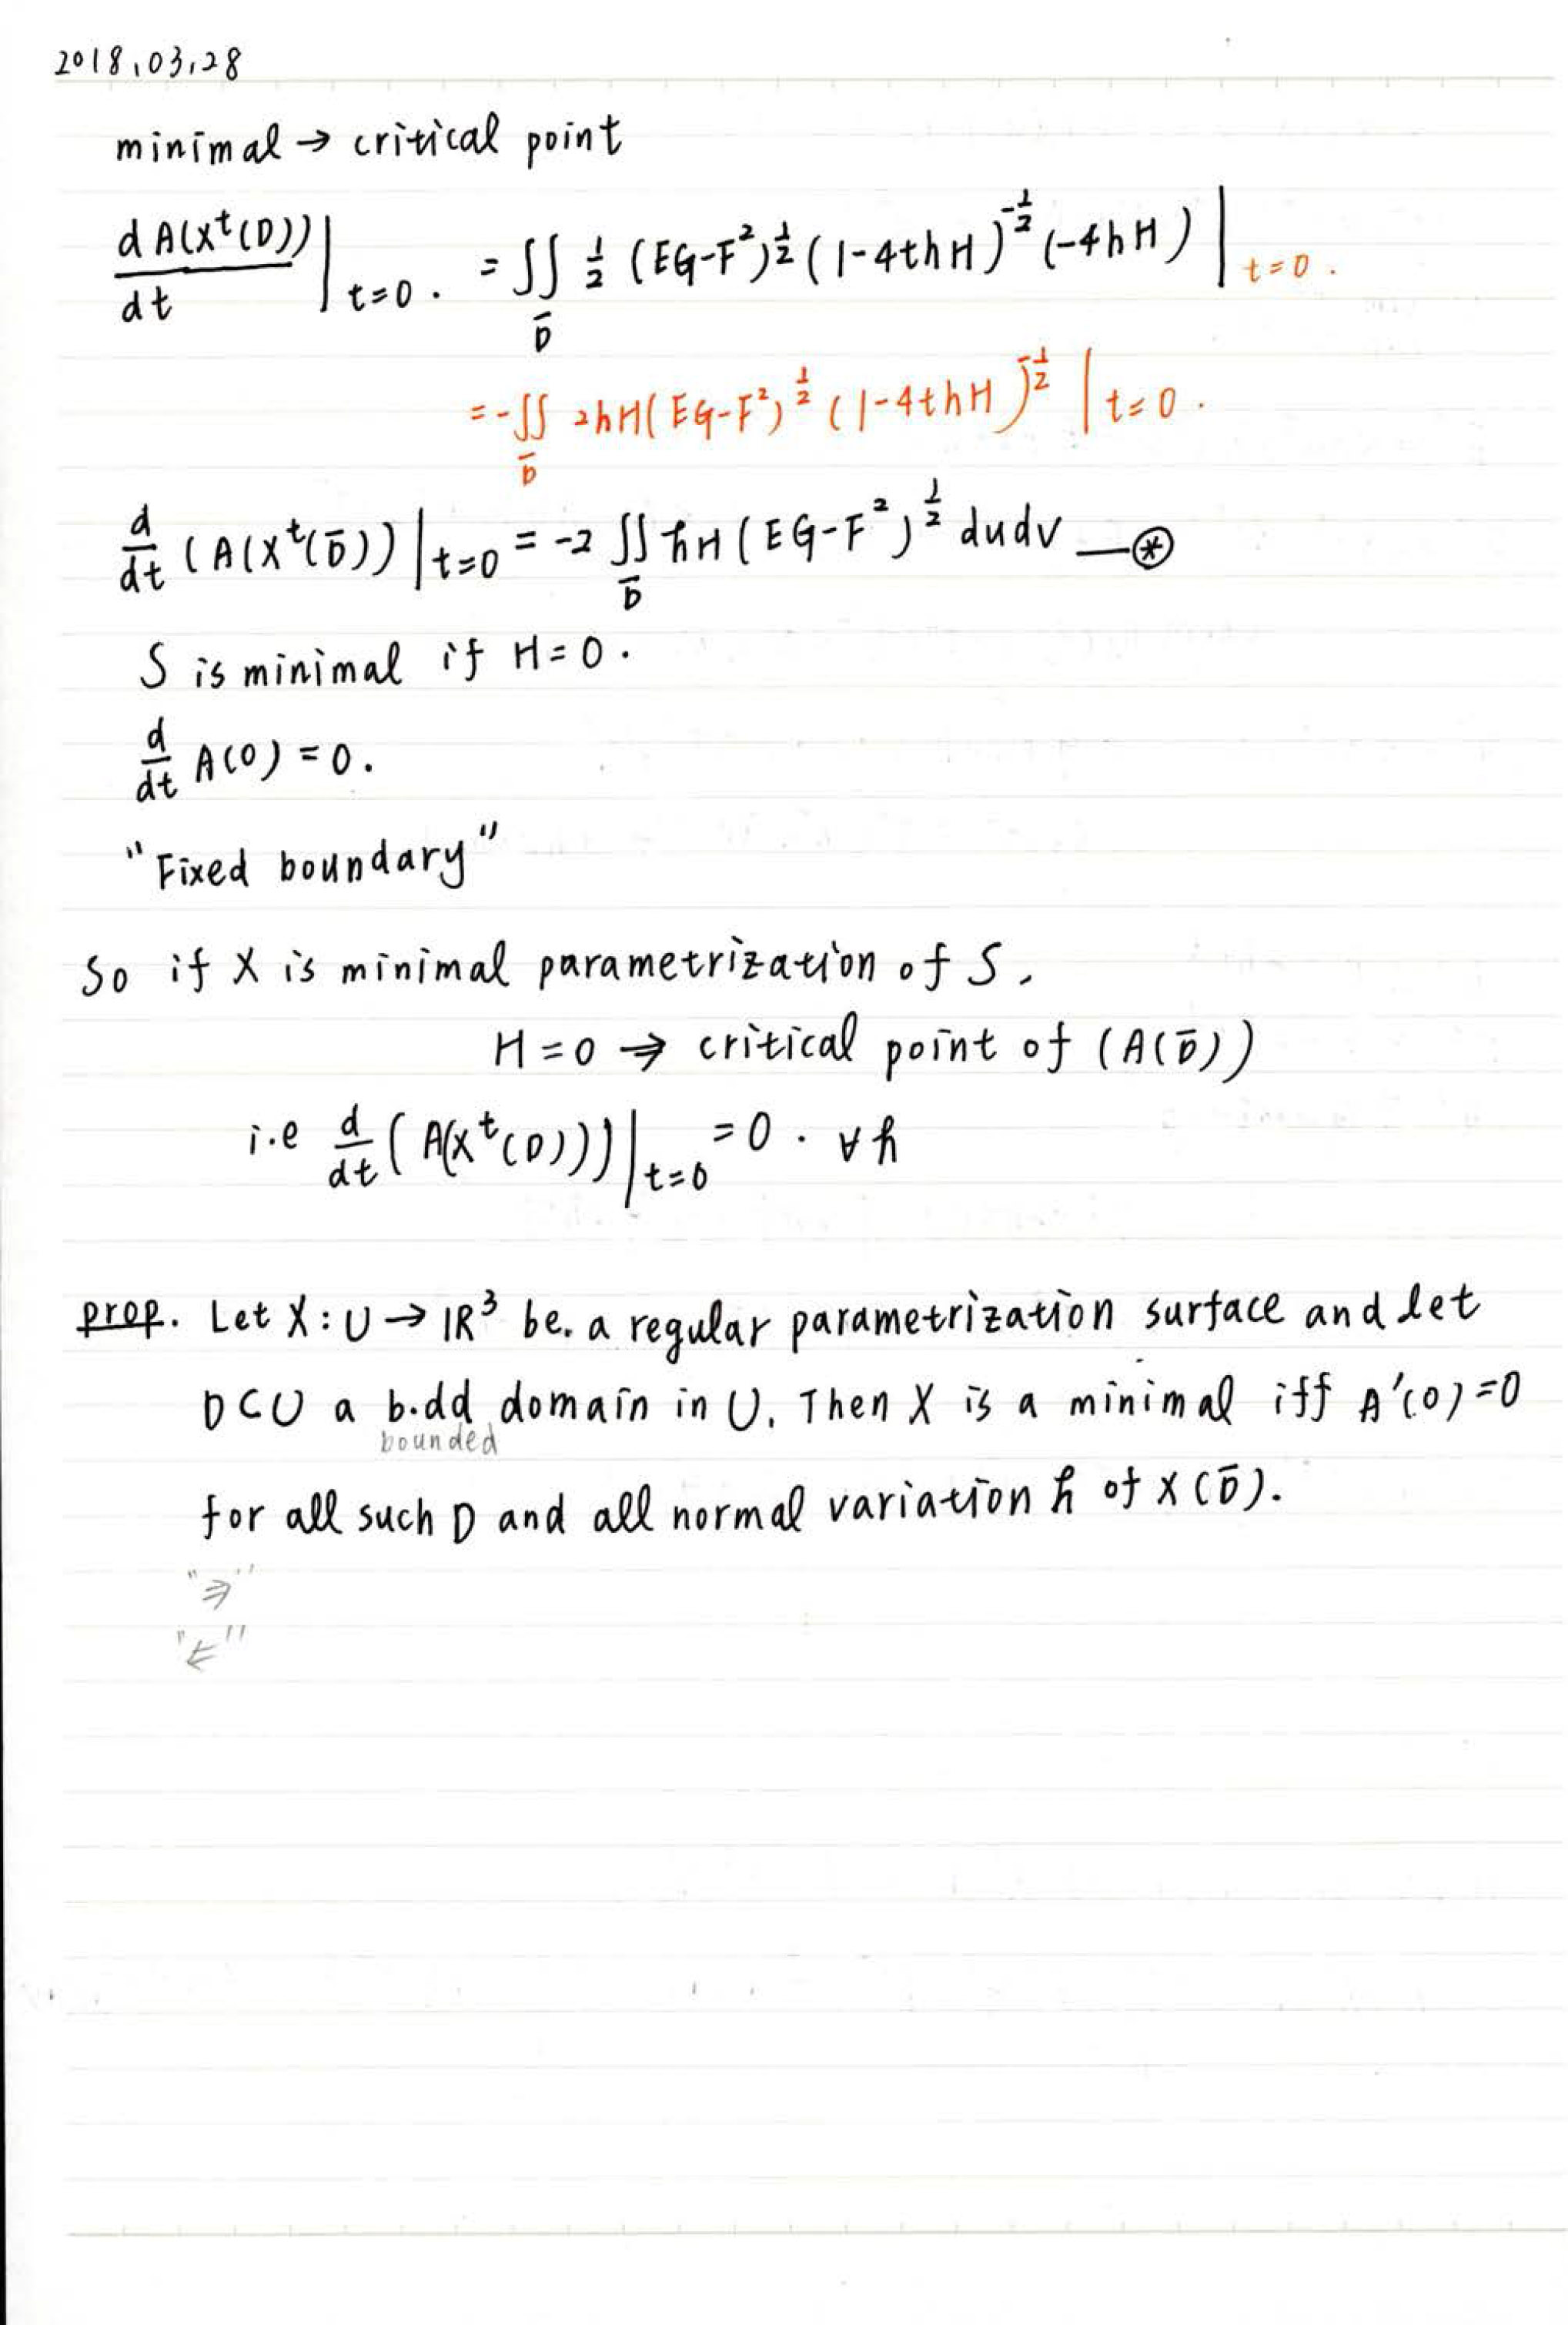 2018,03,28
minimal → critical point
dA(X^t(D))/dt |_{t=0}. = ∬_{D̄} 1/2 (EG-F²)^{1/2} (1-4thH)^{-1/2} (-4hH) |_{t=0}.
= -∬_{D̄} 2hH(EG-F²)^{1/2} (1-4thH)^{-1/2} |_{t=0}.
d/dt (A(X^t(D̄)) |_{t=0} = -2 ∬_{D̄} hH(EG-F²)^{1/2} dudv —⊛
S is minimal if H=0.
d/dt A(0) = 0.
"Fixed boundary"
So if X is minimal parametrization of S,
H=0 ⇒ critical point of (A(D̄))
i.e d/dt (A(X^t(D))) |_{t=0} = 0. ∀h
prop. Let X:U→ℝ³ be. a regular parametrization surface and let
D⊂U a b.dd domain in U. Then X is a minimal iff A'(0)=0
bounded
for all such D and all normal variation h of X(D̄).
"⇒"
"⇐"